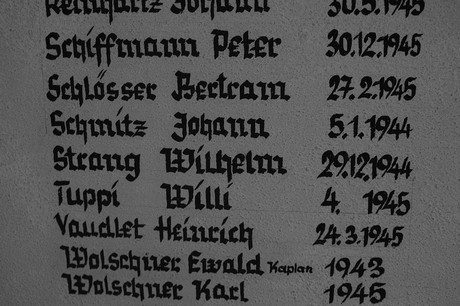 Reinartz Johann 30.5.1945
Schiffmann Peter 30.12.1945
Schlösser Bertram 27.2.1945
Schmitz Johann 5.1.1944
Strang Wilhelm 29.12.1944
Tuppi Willi 4. 1945
Vaudlet Heinrich 24.3.1945
Wolschner Ewald Kaplan 1943
Wolschner Karl 1945